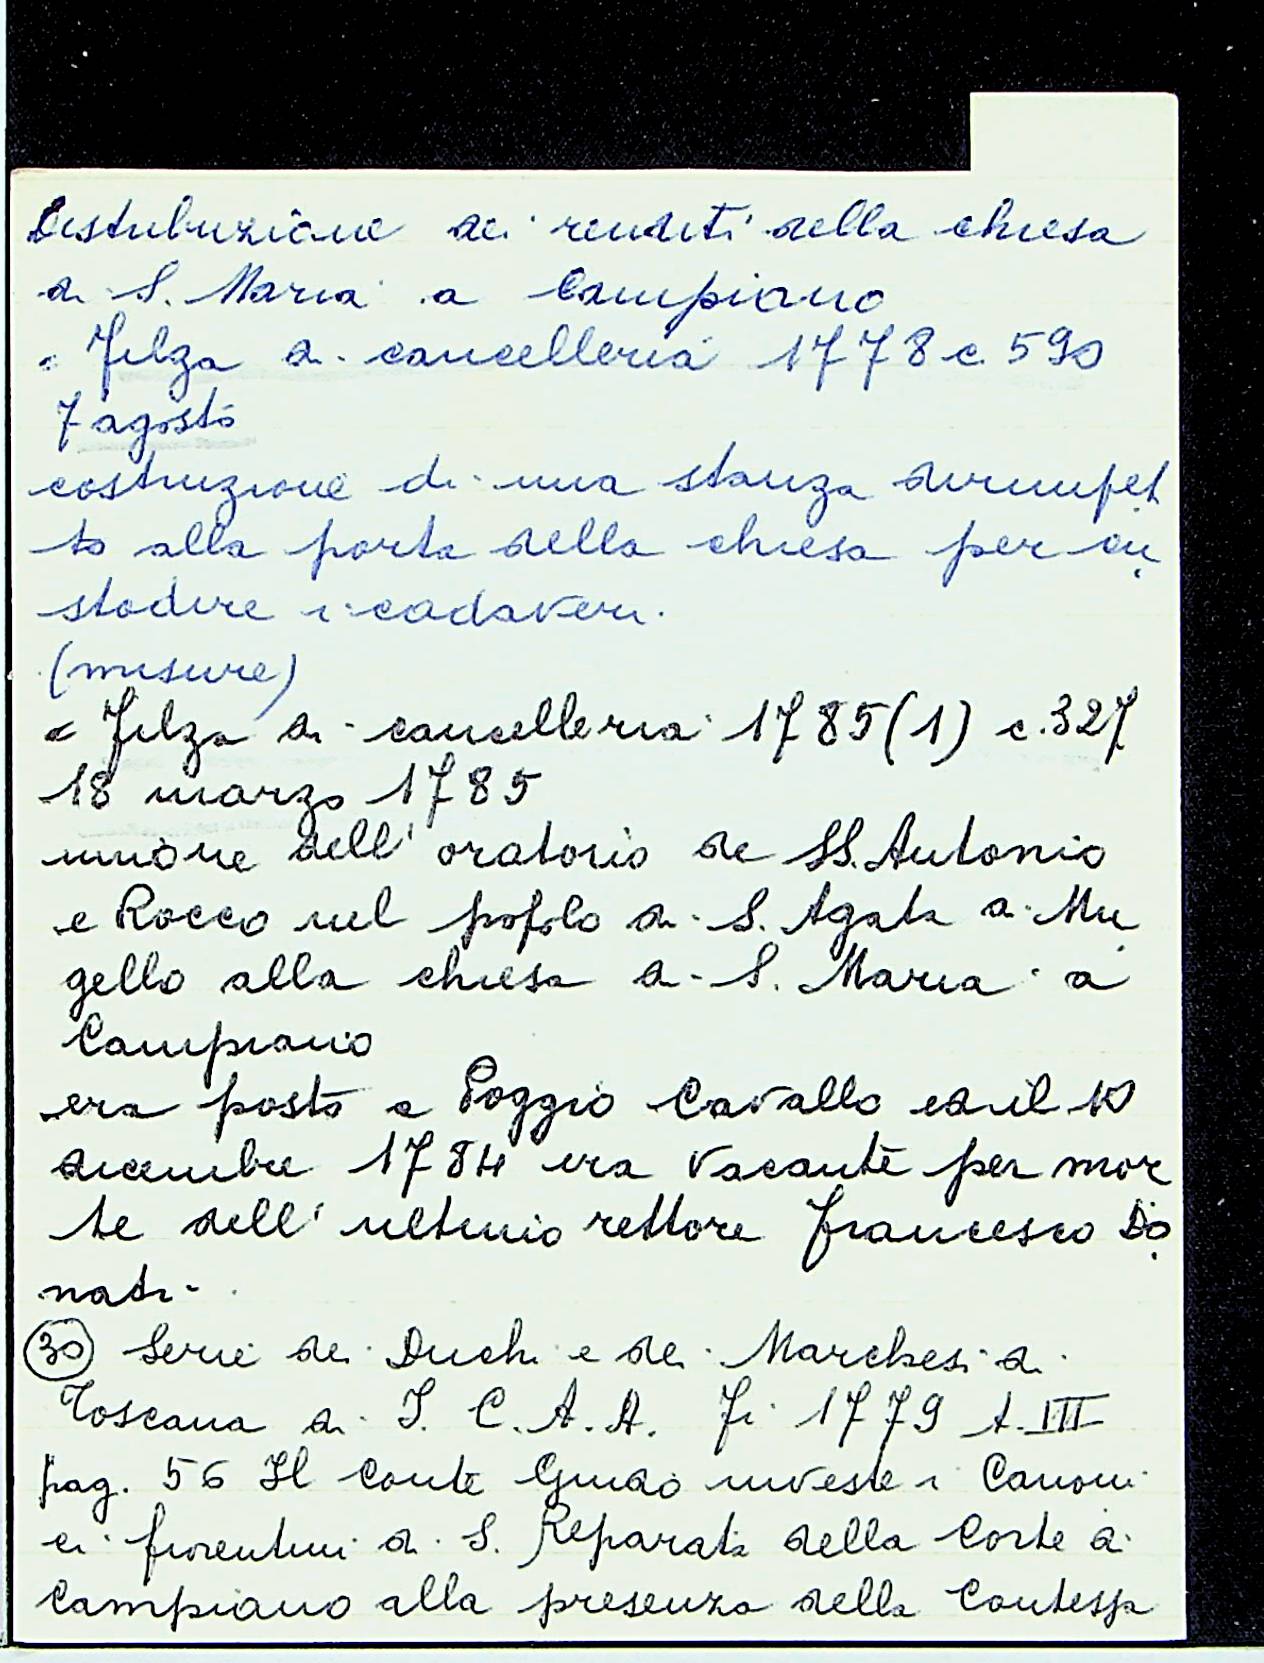 Distribuzione dei renditi della chiesa
di S. Maria a Campiano
= Filza di cancelleria 1778 c. 590
7 agosto
costruzione di una stanza dirimpet
to alla porta della chiesa per cu
stodire i cadaveri.
(misure)
= Filza di cancelleria 1785(1) c.327
18 marzo 1785
unione dell' oratorio de SS. Antonio
e Rocco nel popolo di S. Agata a Mu
gello alla chiesa di S. Maria a
Campiano
era posto a Poggio Cavallo ed il 10
dicembre 1784 era vacante per mor
te dell' ultimo rettore Francesco Do
nati.
(30) Serie dei Duchi e dei Marchesi di
Toscana di I. C. A. A. Fi 1779 t. III
pag. 56 Il Conte Guido investe i Canoni
ci fiorentini di S. Reparata della Corte di
Campiano alla presenza della Contessa